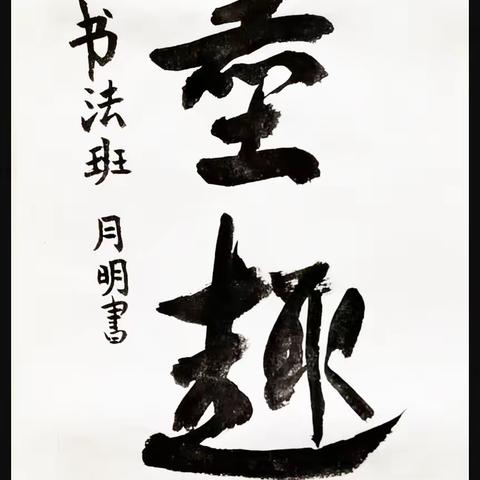 墨趣
书法班 月明書